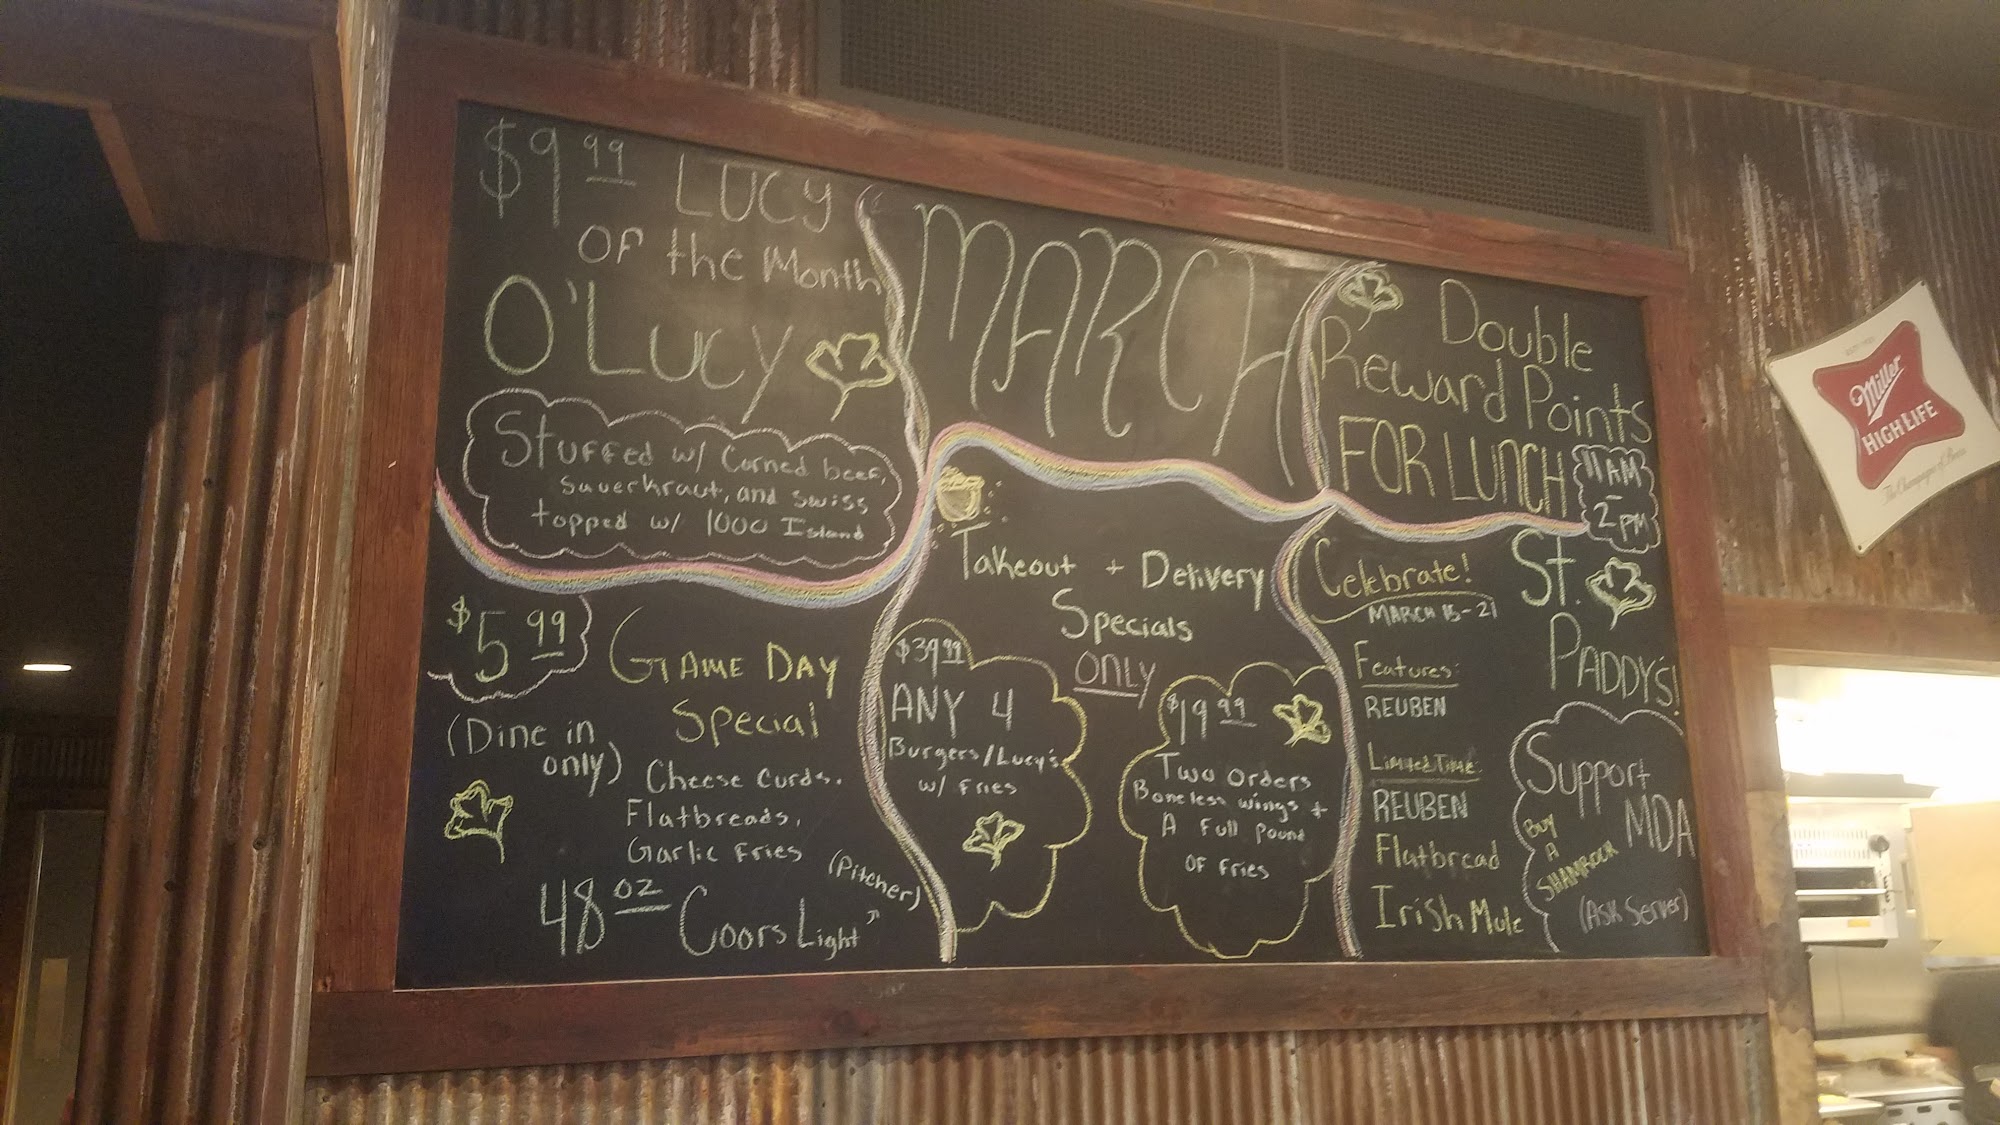 $9.99 LUCY
OF the Month
O'LUCY
Stuffed w/ Corned beef,
Sauerkraut, and swiss
topped w/ 1000 Island
MARCH
Double
Reward Points
FOR LUNCH
11AM
-
2PM
$5.99
GAME DAY
Special
(Dine in
only)
Cheese Curds.
Flatbreads,
Garlic Fries
48 oz Coors Light
(Pitcher)
Takeout + Delivery
Specials
ONLY
$39.99
ANY 4
Burgers/Lucy's
w/ Fries
$19.99
Two Orders
Boneless wings +
A Full Pound
OF Fries
Celebrate!
MARCH 15-21
St.
PADDY'S!
Features:
REUBEN
Limited Time:
REUBEN
Flatbread
Irish Mule
Support
MDA
BUY
A
SHAMROCK
(Ask Server)
Miller
HIGH LIFE
The Champagne of Beers